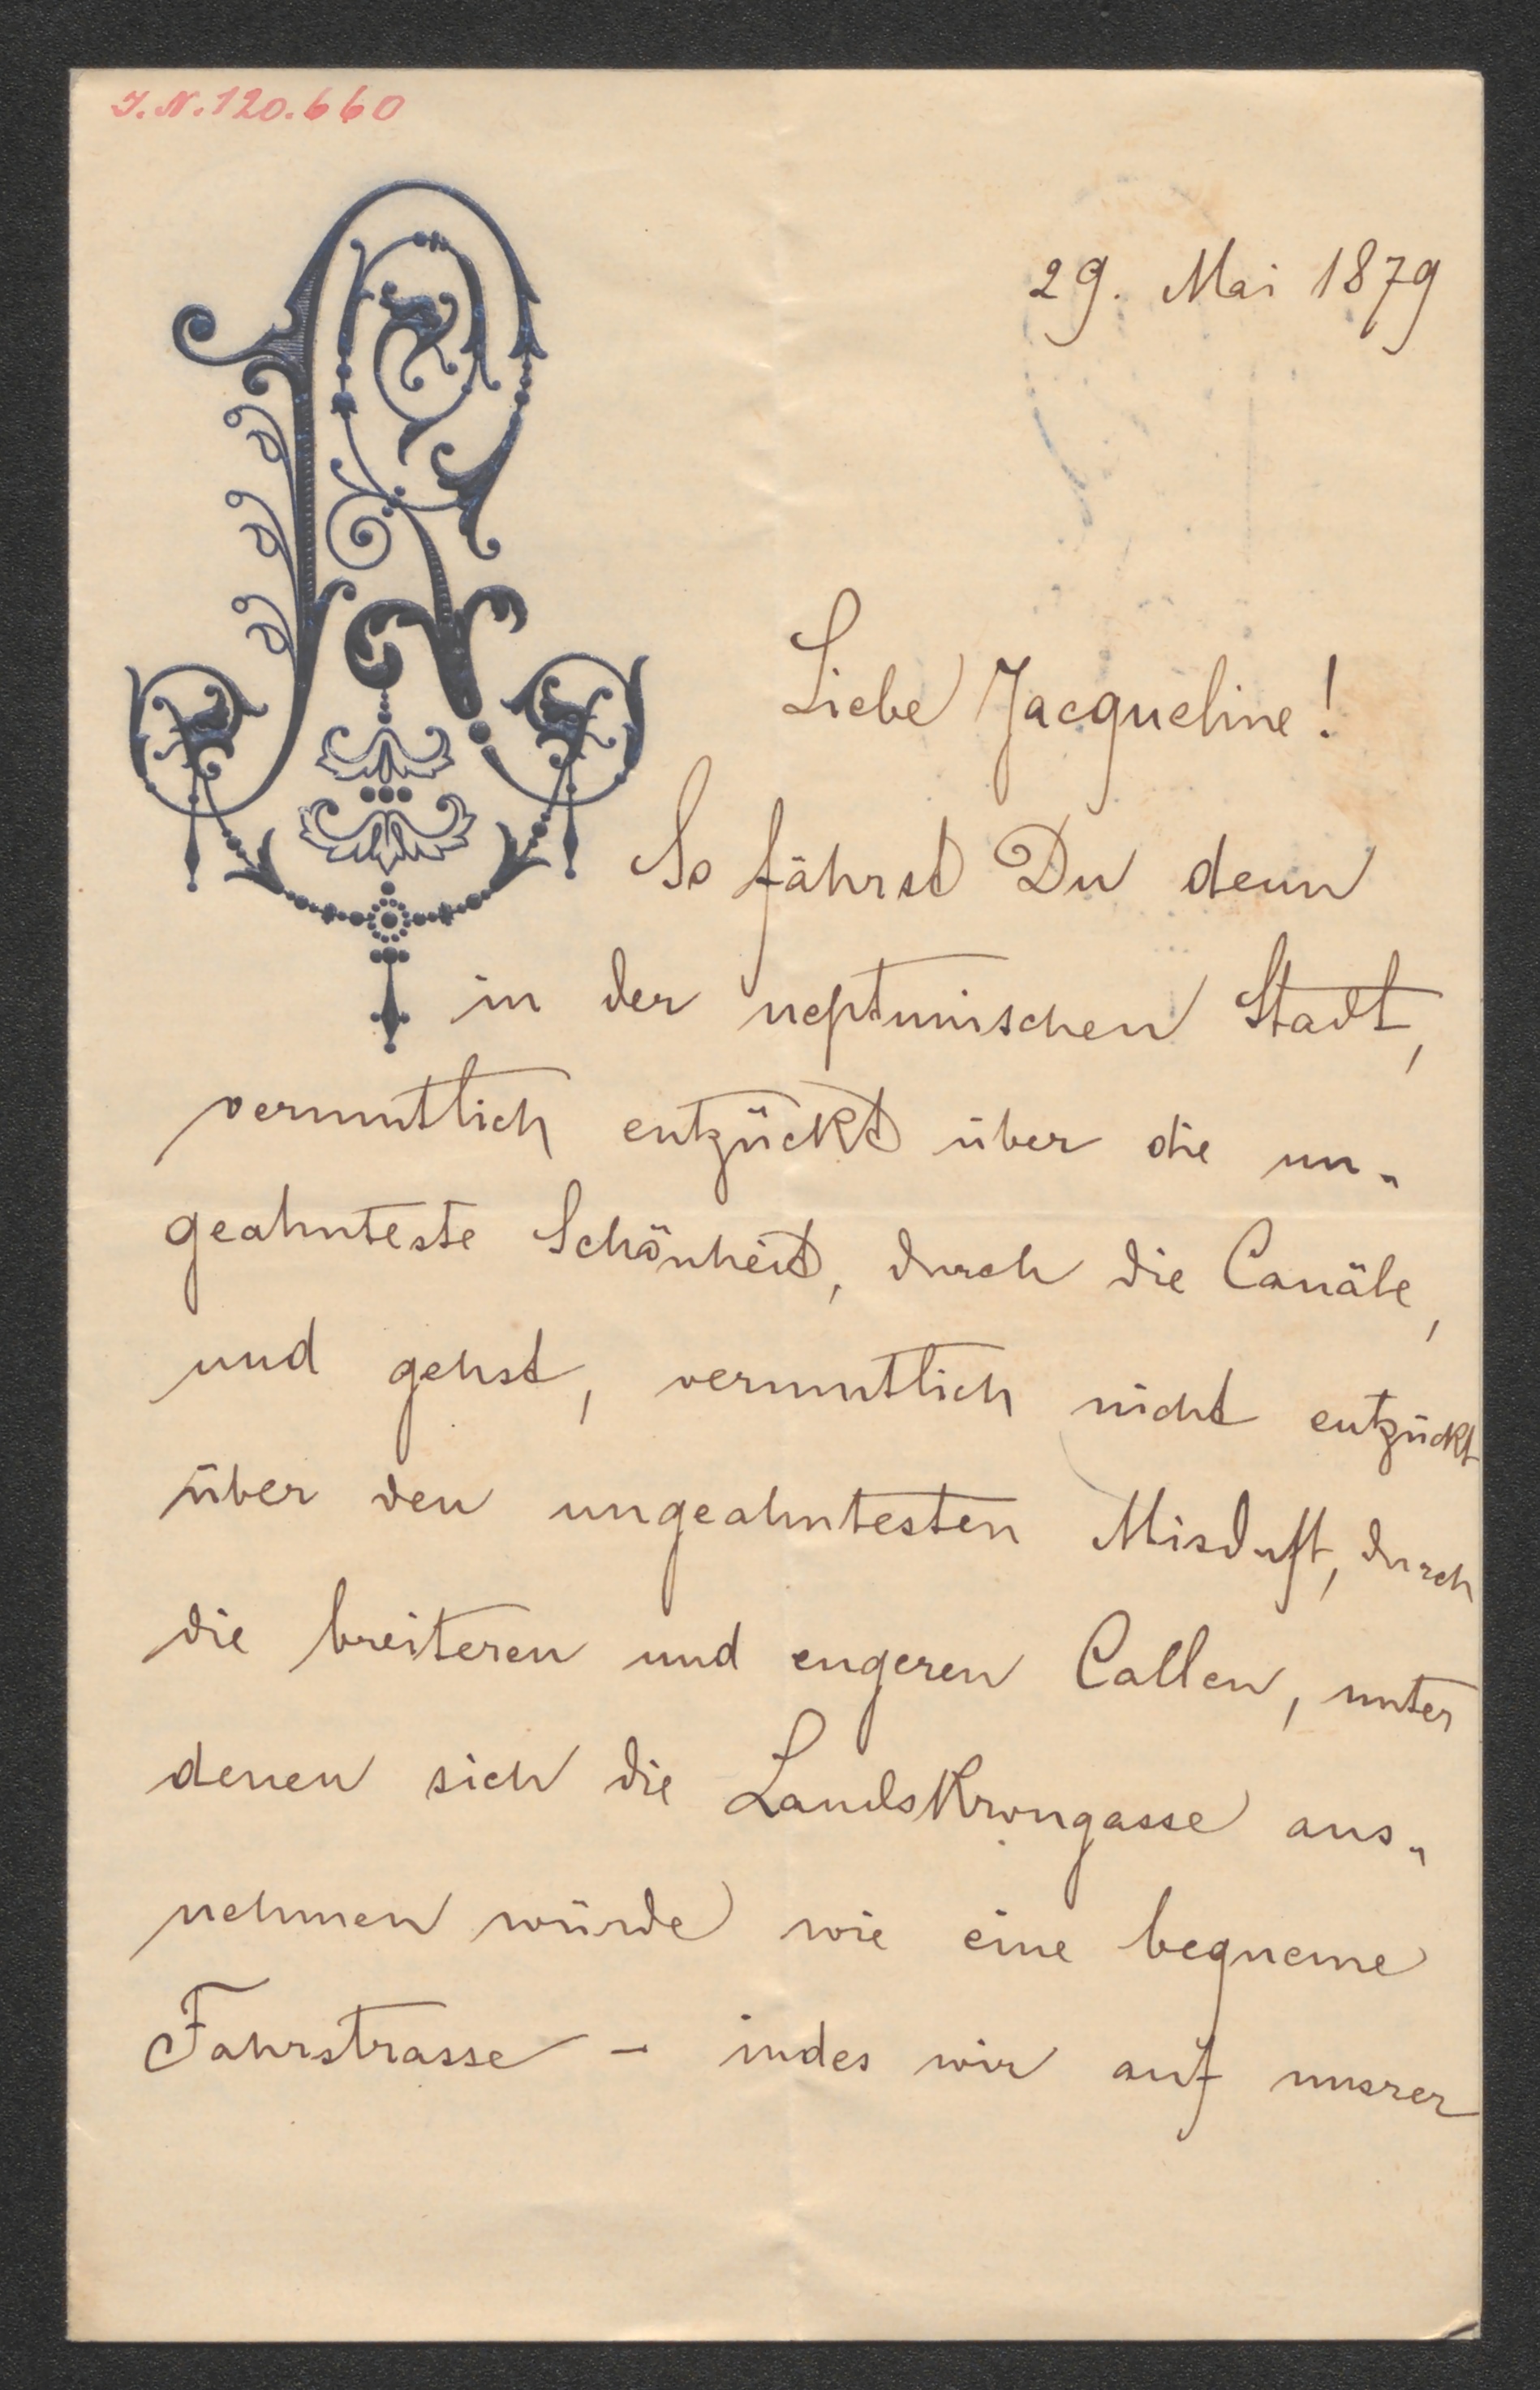 I.N. 120.660
29. Mai 1879
Liebe Jacqueline!
So fährst Du denn
in der neptunischen Stadt,
vermutlich entzückt über die un-
geahnteste Schönheit, durch die Canäle,
und gehst, vermutlich nicht entzückt
über den ungeahntesten Misduft, durch
die breiteren und engeren Callen, unter
denen sich die Landskrongasse aus-
nehmen würde wie eine bequeme
Fahrstrasse – indes wir auf unsrer